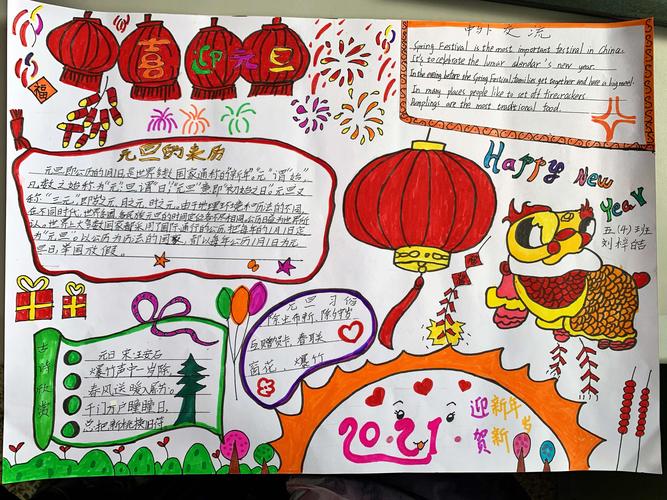 喜迎元旦
福
中外交流
Spring Festival is the most important festival in China.
It's to celebrate the lunar calendar's new year.
In the evening before the Spring Festival families get together and have a big meal.
In many places people like to set off firecrackers.
Dumplings are the most traditional food.
元旦的来历
元旦即公历的1月1日是世界多数国家通称的"新年"。元"谓"始",
凡数之始称为"元"旦谓"日""元旦"意即"初始之日"。元旦又
称"三元"即岁之元月之元时之元。由于地理环境和历法的不同
在不同时代,世界各国各民族元旦的时间定位各不相同。公历已成为世界所
认。世界上大多数国家都采用了国际通行的公历把每年的1月1日定
为"元旦"。以公历为历法的国家,都以每年公历1月1日为元
旦日,举国放假。
Happy New
Year
五(4)班
刘梓皓
元旦习俗
除尘布新、除夕守岁
互赠贺卡、春联
窗花、爆竹
古诗欣赏
元日 宋:王安石
爆竹声中一岁除
春风送暖入屠苏。
千门万户曈曈日,
总把新桃换旧符
2021
迎新年
贺新岁